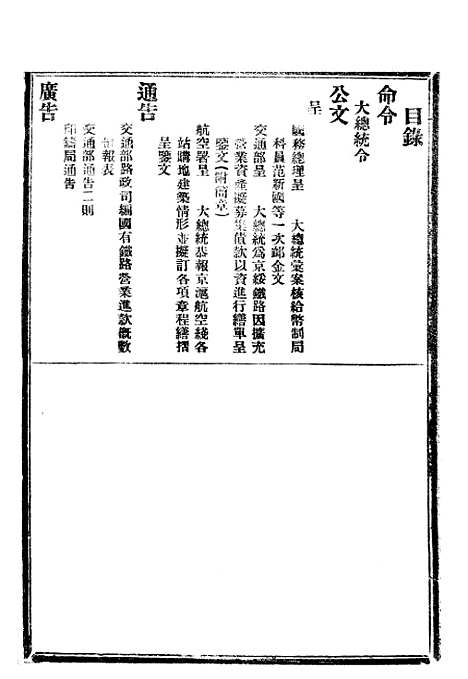 目錄
命令
大總統令
公文
呈
國務總理呈　大總統彙案核給幣制局
科員范新國等一次䘏金文
交通部呈　大總統爲京綏鐵路因擴充
營業資產擬募集債款以資進行繕單呈
鑒文（附簡章）
航空署呈　大總統恭報京滬航空綫各
站購地建築情形並擬訂各項章程繕摺
呈鑒文
通告
交通部路政司編國有鐵路營業進款概數
旬報表
交通部通告二則
印鑄局通告
廣告